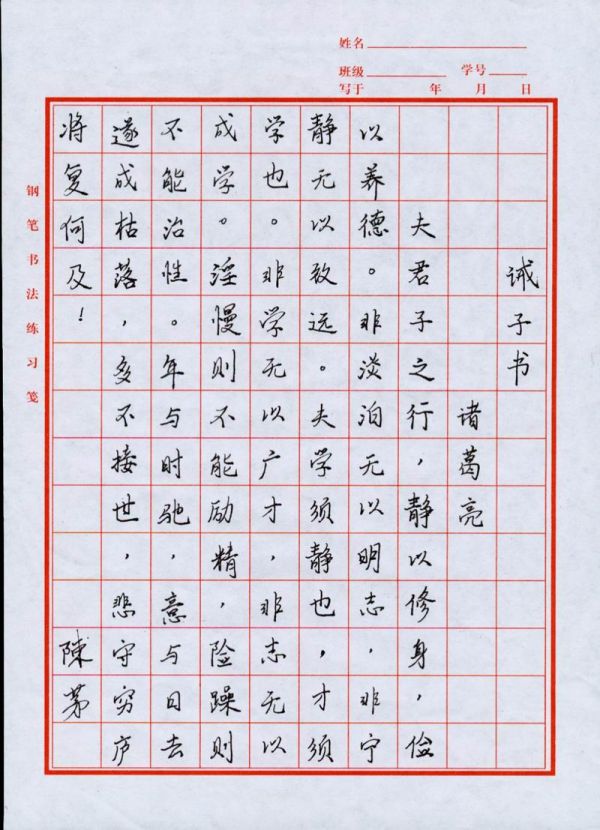 姓名
班级 学号
写于 年 月 日
诫子书
诸葛亮
夫君子之行，静以修身，俭
以养德。非淡泊无以明志，非宁
静无以致远。夫学须静也，才须
学也。非学无以广才，非志无以
成学。淫慢则不能励精，险躁则
不能治性。年与时驰，意与日去
遂成枯落，多不接世，悲守穷庐
将复何及！
陳茅
钢笔书法练习笺